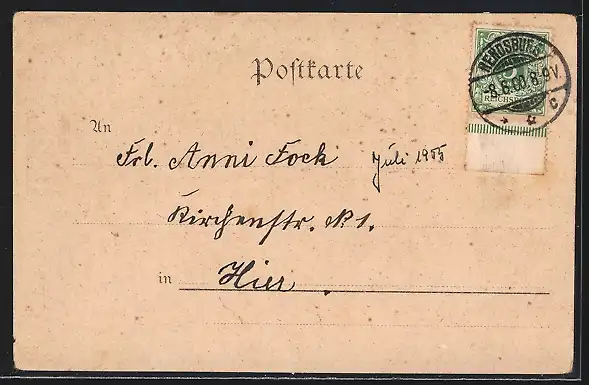 Postkarte
RENDSBURG
-8.6.00.8-9V.
* * c
REICHSPOST
An
Frl. Anni Fock
Juli 1955
Kirchenstr. No 1.
in Hier